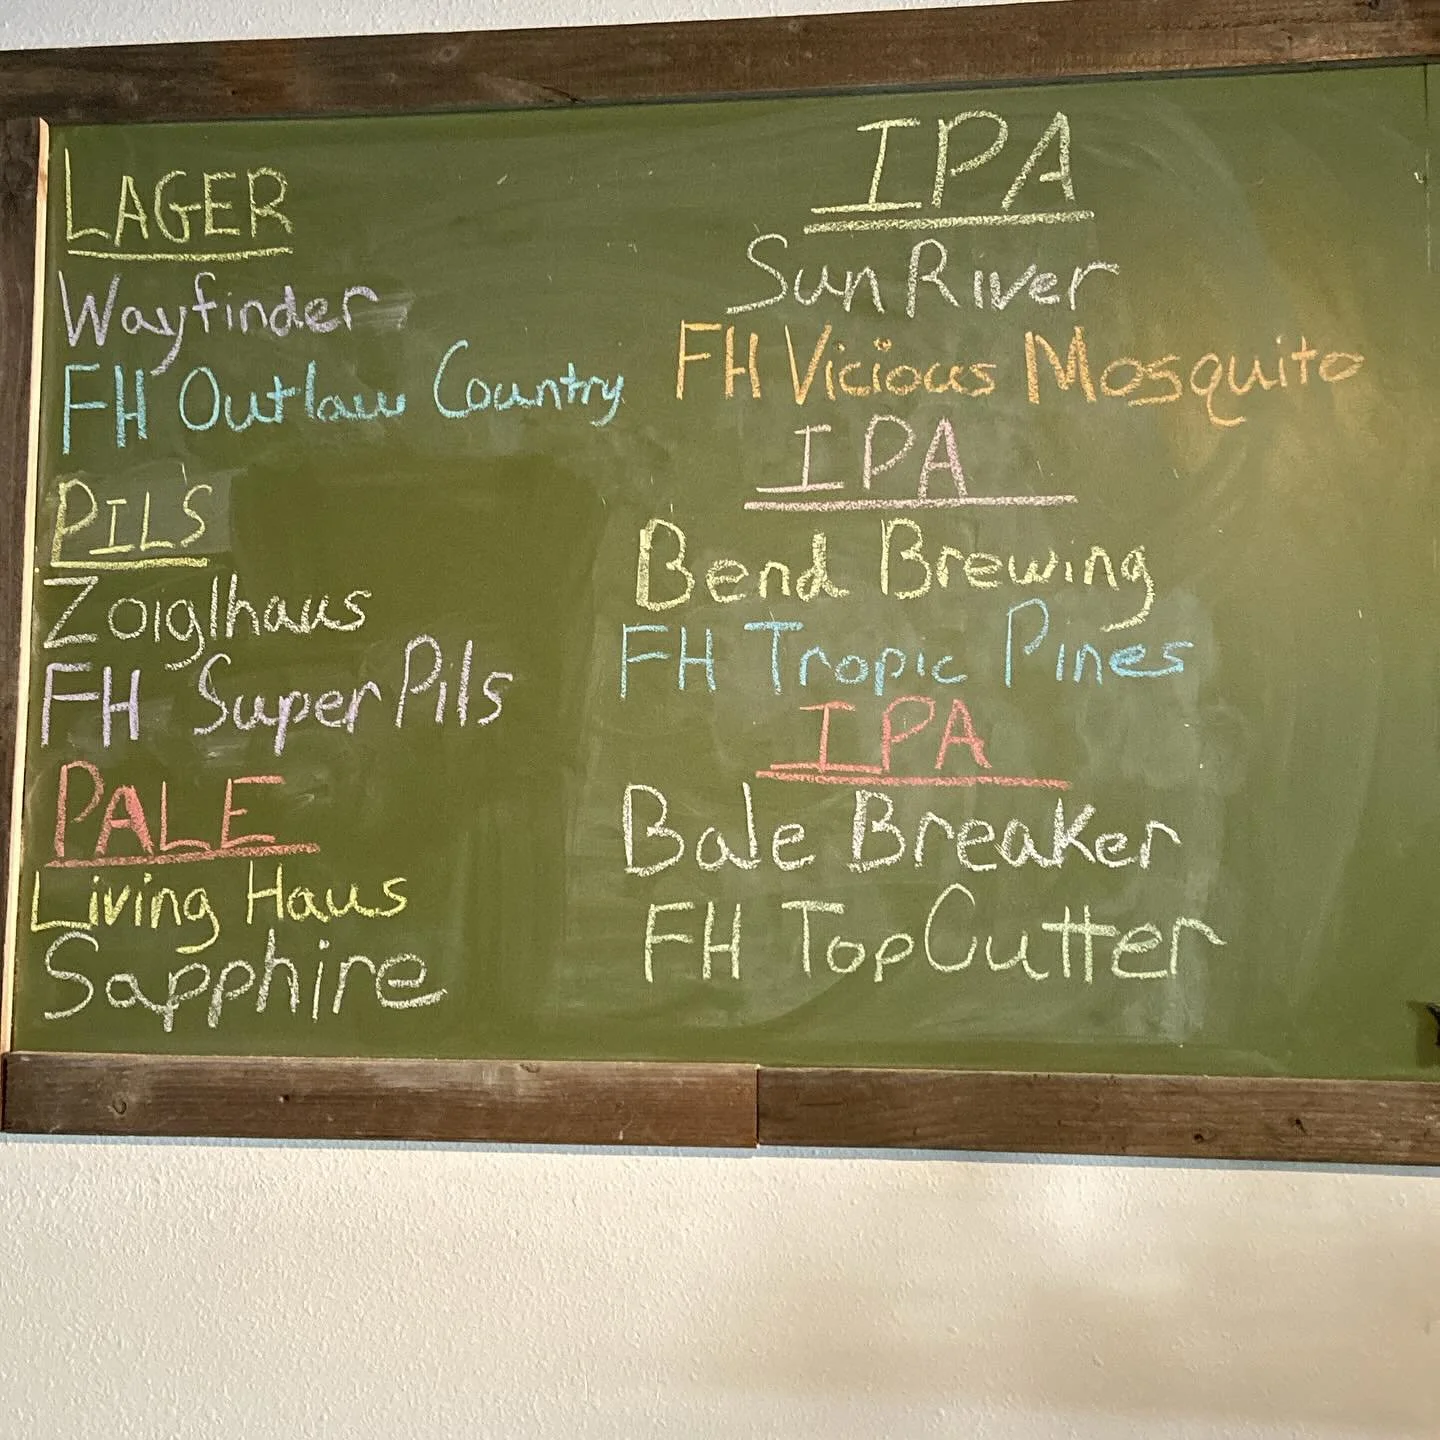 LAGER
Wayfinder
FH Outlaw Country
PILS
Zoiglhaus
FH Super Pils
PALE
Living Haus
Sapphire
IPA
Sun River
FH Vicious Mosquito
IPA
Bend Brewing
FH Tropic Pines
IPA
Bale Breaker
FH TopCutter